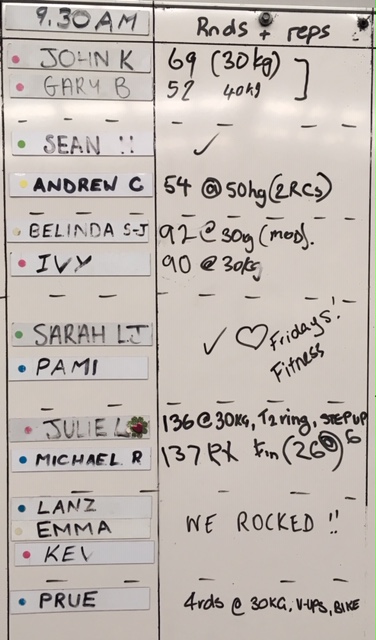 9.30 AM Rnds + reps
JOHN K 69 (30kg)
GARY B 52 40kg
SEAN !! ✓
ANDREW C 54 @ 50kg (2RCs)
BELINDA S-J 92 @ 30kg (mod).
IVY 90 @ 30kg
SARAH LJ ✓ ♡ Fridays!
PAMI Fitness
JULIE L 136 @ 30KG, T2ring, STEP UP
MICHAEL R 137 RX Fin (26@) 6
LANZ
EMMA WE ROCKED !!
KEV
PRUE 4rds @ 30KG, V-UPS, BIKE